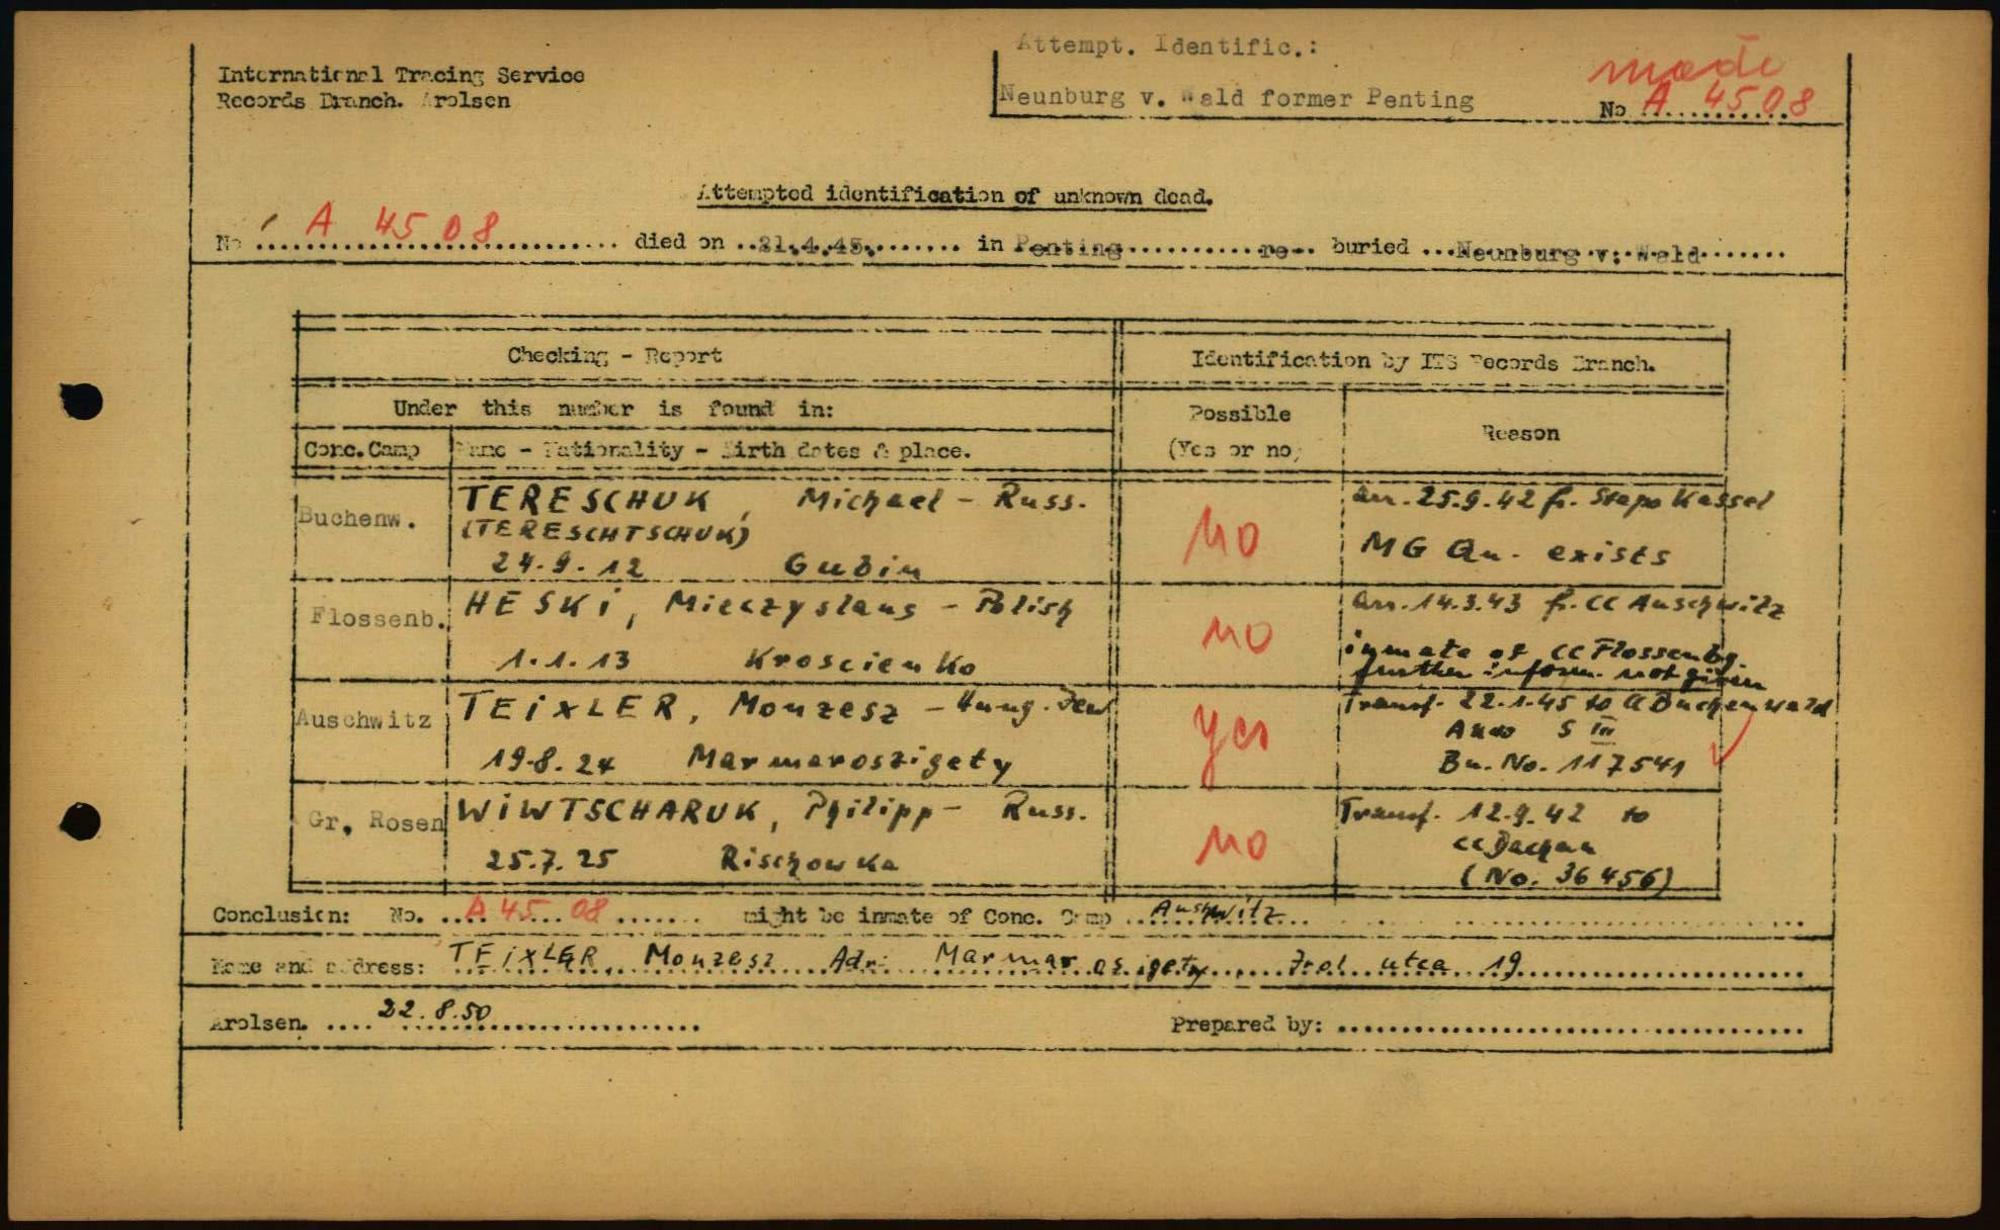 Attempt. Identific.:
International Tracing Service
Records Branch. Arolsen
Neunburg v. Wald former Penting
made
No A 4508
Attempted identification of unknown dead.
No A 4508 died on 21.4.45. in Penting re- buried Neunburg v. Wald
Checking - Report
Identification by ITS Records Branch.
Under this number is found in:
Possible
(Yes or no)
Reason
Conc.Camp Name - Nationality - Birth dates & place.
Buchenw. TERESCHUK, Michael - Russ. no arr. 25.9.42 fr. Stapo Kassel
(TERESCHTSCHUK)
24.9.12 Gubin MG Qu. exists
Flossenb. HESKi, Mieczyslaus - Polish no arr. 14.3.43 fr. CC Auschwitz
1.1.13 Kroscienko inmate of CC Flossenbg.
further inform. not given
Auschwitz TEiXLER, Monzesz - Hung. Jew yes Transf. 22.1.45 to CC Buchenwald
Auso S III
19.8.24 Marmaroszigety Bu. No. 117541
Gr. Rosen WiWTSCHARUK, Philipp - Russ. no Transf. 12.9.42 to
25.7.25 Rischowka cc Dachau
(No. 36456)
Conclusion: No. A 4508 might be inmate of Conc. Camp Auschwitz
Name and address: TEiXLER, Monzesz Adr: Marmaroszigety, Zrol utca 19
Arolsen. 22.8.50 Prepared by: